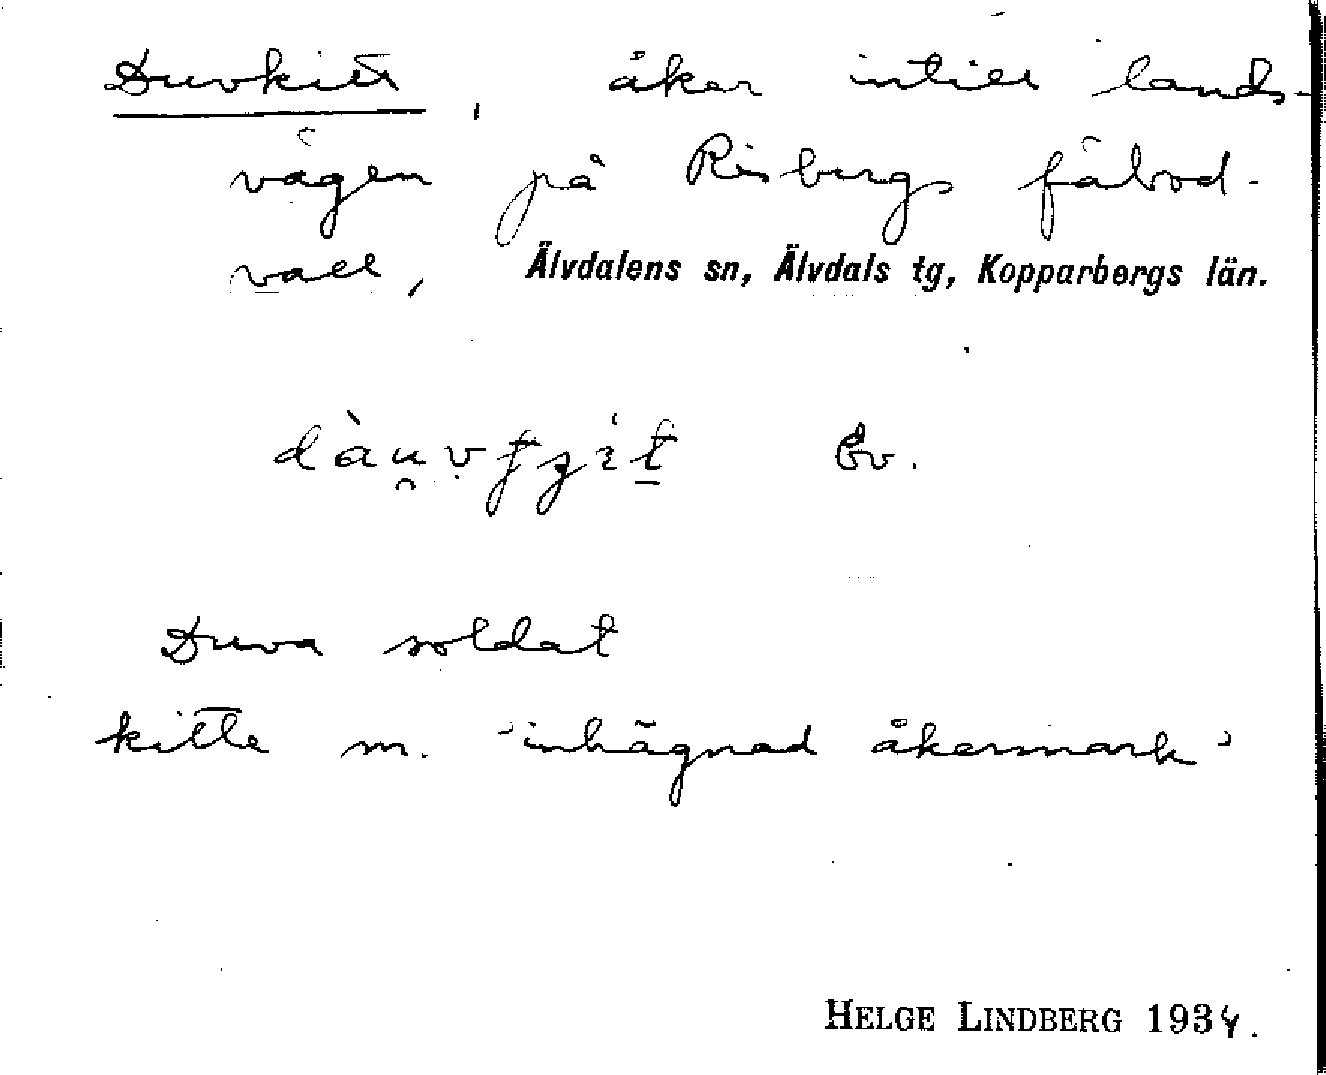 Duvkitt, åker intill lands-
vägen på Risbergs fäbod-
vall, Älvdalens sn, Älvdals tg, Kopparbergs län.
Duva soldat
kitte m. 'inhägnad åkermark'
HELGE LINDBERG 1934.